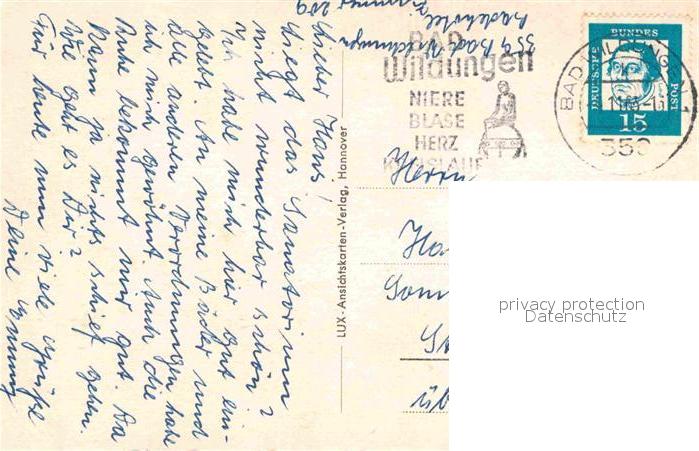 359 Bad Wildungen
Badehotel
Zimmer 209
Lieber Hans!
Liegt das Sanatorium
nicht wunderbar schön?
Ich habe mich hier gut ein-
gelebt. An meine Bäder und
alle anderen Verordnungen habe
ich mich gewöhnt. Auch die
Ruhe bekommt mir gut. Da
kann ja nichts schief gehen.
Wie geht es Dir?
Für heute nun viele Grüße
Deine
LUX-Ansichtskarten-Verlag, Hannover
BAD
Wildungen
NIERE
BLASE
HERZ
KREISLAUF
BAD WILDUNGEN
359
DEUTSCHE BUNDESPOST
15
Herrn
Ha
Som
üb
privacy protection
Datenschutz